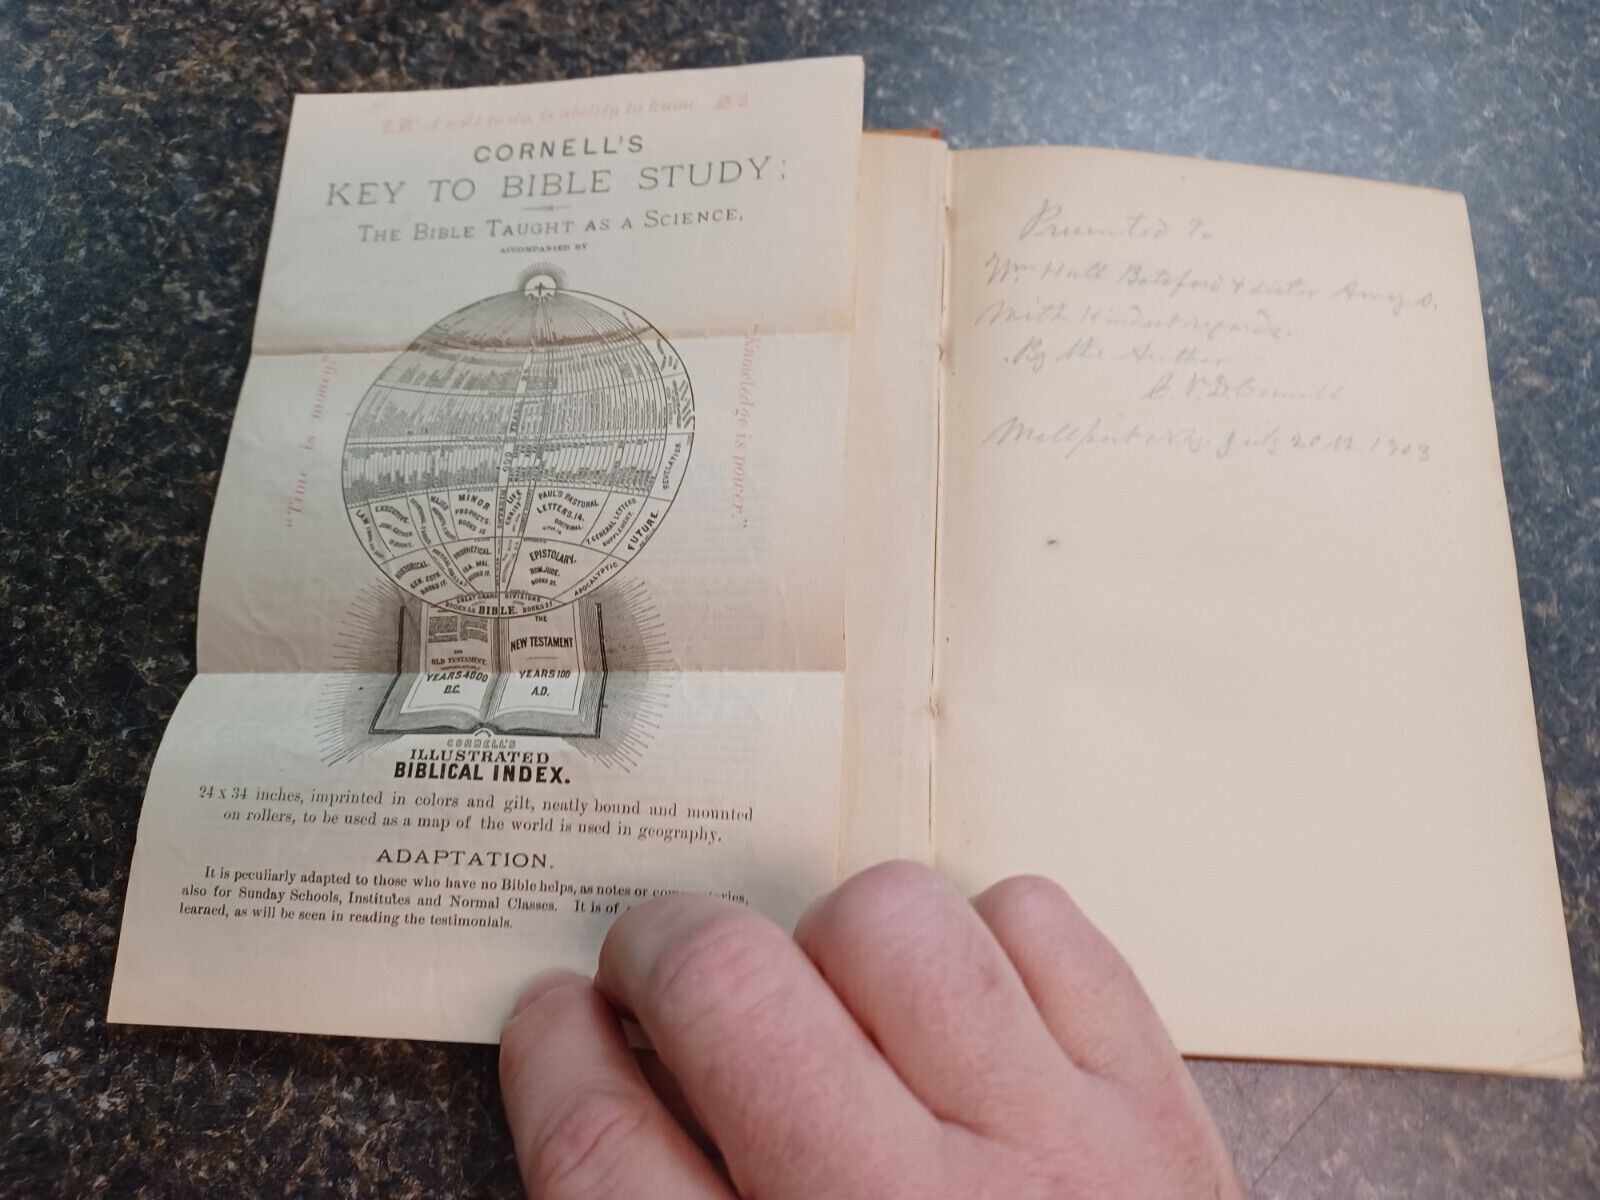 A will to do, is ability to know.
CORNELL'S
KEY TO BIBLE STUDY;
OR
THE BIBLE TAUGHT AS A SCIENCE,
ACCOMPANIED BY
"Time is money."
"Knowledge is power."
REVELATION.
LAW
EXECUTIVE.
MAJOR
MINOR
PROPHETS.
BOOKS 12
LIFE
CHRIST
PAUL'S PASTORAL
LETTERS. 14.
DOCTRINAL.
7. GENERAL LETTERS
SUPPLEMENT.
FUTURE.
HISTORICAL.
GEN. ESTH.
BOOKS 17.
PROPHETICAL.
ISA. MAL.
BOOKS 17.
EPISTOLARY.
ROM. JUDE.
BOOKS 21.
APOCALYPTIC
GREAT GRAND DIVISIONS
BOOKS 39. BIBLE. BOOKS 27.
OLD TESTAMENT.
YEARS 4000
B.C.
THE
NEW TESTAMENT
YEARS 100
A.D.
CORNELL'S
ILLUSTRATED
BIBLICAL INDEX.
24 x 34 inches, imprinted in colors and gilt, neatly bound and mounted
on rollers, to be used as a map of the world is used in geography.
ADAPTATION.
It is peculiarly adapted to those who have no Bible helps, as notes or
also for Sunday Schools, Institutes and Normal Classes. It is of
learned, as will be seen in reading the testimonials.
Presented To
Wm Hull Botsford & sister Amy D.
With Kindest regards.
By the Author
C. V. D. Cornell
Millport N.Y. July 20th 1903